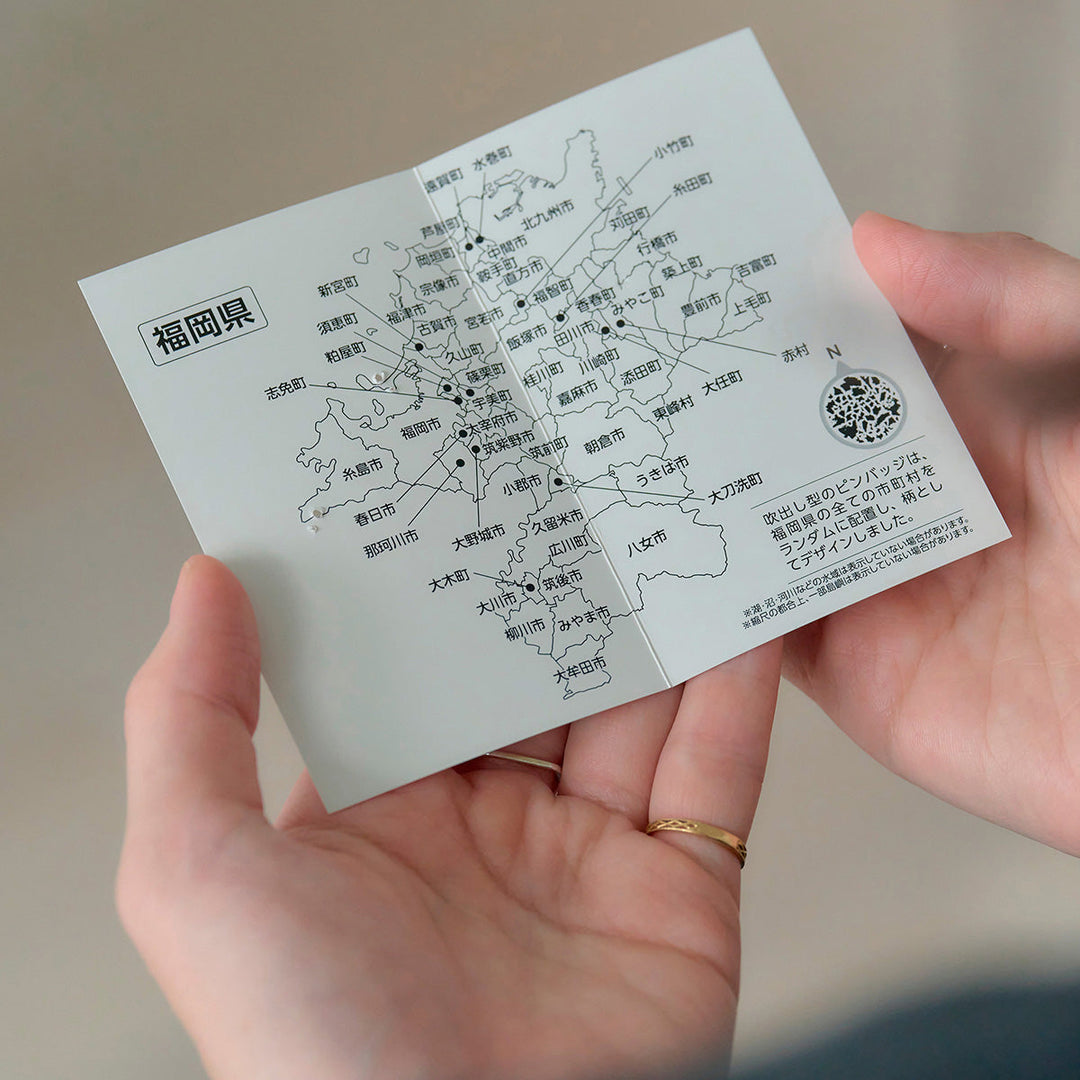 福岡県
遠賀町
水巻町
小竹町
糸田町
芦屋町
北九州市
苅田町
岡垣町
中間市
行橋市
新宮町
宗像市
鞍手町
直方市
築上町
吉富町
福智町
須恵町
福津市
古賀市
宮若市
香春町
みやこ町
豊前市
上毛町
粕屋町
久山町
飯塚市
田川市
赤村
志免町
篠栗町
桂川町
川崎町
添田町
大任町
宇美町
嘉麻市
福岡市
太宰府市
東峰村
筑紫野市
筑前町
朝倉市
糸島市
うきは市
小郡市
大刀洗町
春日市
那珂川市
大野城市
久留米市
広川町
八女市
大木町
筑後市
大川市
柳川市
みやま市
大牟田市
N
吹出し型のピンバッジは、
福岡県の全ての市町村を
ランダムに配置し、柄とし
てデザインしました。
※湖・沼・河川などの水域は表示していない場合があります。
※縮尺の都合上、一部島嶼は表示していない場合があります。